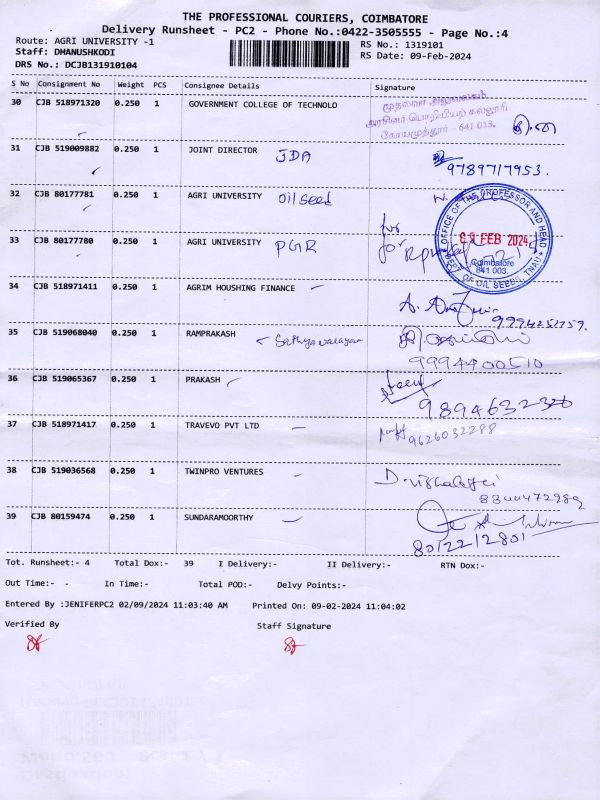 THE PROFESSIONAL COURIERS, COIMBATORE
Delivery Runsheet - PC2 - Phone No.:0422-3505555 - Page No.:4
Route: AGRI UNIVERSITY -1
RS No.: 1319101
Staff: DHANUSHKODI
RS Date: 09-Feb-2024
DRS No.: DCJB131910104
S No Consignment No Weight PCS Consignee Details Signature
30 CJB 518971320 0.250 1 GOVERNMENT COLLEGE OF TECHNOLO
முதல்வர் அலுவலகம்
அரசினர் பொறியியற் கல்லூரி
கோயமுத்தூர் - 641 013.
31 CJB 519009882 0.250 1 JOINT DIRECTOR JDA
9789717953.
32 CJB 80177781 0.250 1 AGRI UNIVERSITY Oil seed
OFFICE OF THE PROFESSOR AND HEAD
09 FEB 2024
Coimbatore
641 003.
DEPT. OF OIL SEEDS, TNAU
33 CJB 80177780 0.250 1 AGRI UNIVERSITY PGR
for
34 CJB 518971411 0.250 1 AGRIM HOUSHING FINANCE
35 CJB 519068040 0.250 1 RAMPRAKASH Sathyanarayan
9994400510
36 CJB 519065367 0.250 1 PRAKASH
37 CJB 518971417 0.250 1 TRAVEVO PVT LTD
9626032288
38 CJB 519036568 0.250 1 TWINPRO VENTURES
39 CJB 80159474 0.250 1 SUNDARAMOORTHY
8012212801
Tot. Runsheet:- 4 Total Dox:- 39 I Delivery:- II Delivery:- RTN Dox:-
Out Time:- - In Time:- Total POD:- Delvy Points:-
Entered By :JENIFERPC2 02/09/2024 11:03:40 AM Printed On: 09-02-2024 11:04:02
Verified By Staff Signature